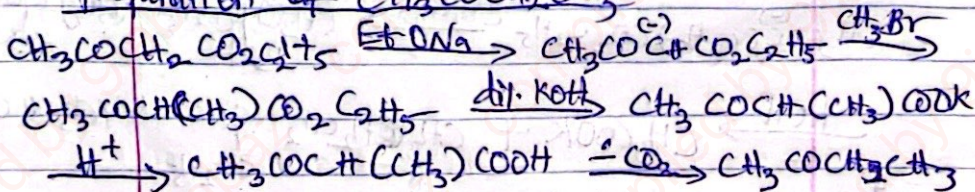 CH3COCH2CO2C2H5 EtONa → CH3CO(-)CHCO2C2H5 CH3Br →
CH3COCH(CH3)CO2C2H5 dil. KOH → CH3COCH(CH3)COOK
H+ → CH3COCH(CH3)COOH -CO2 → CH3COCH2CH3